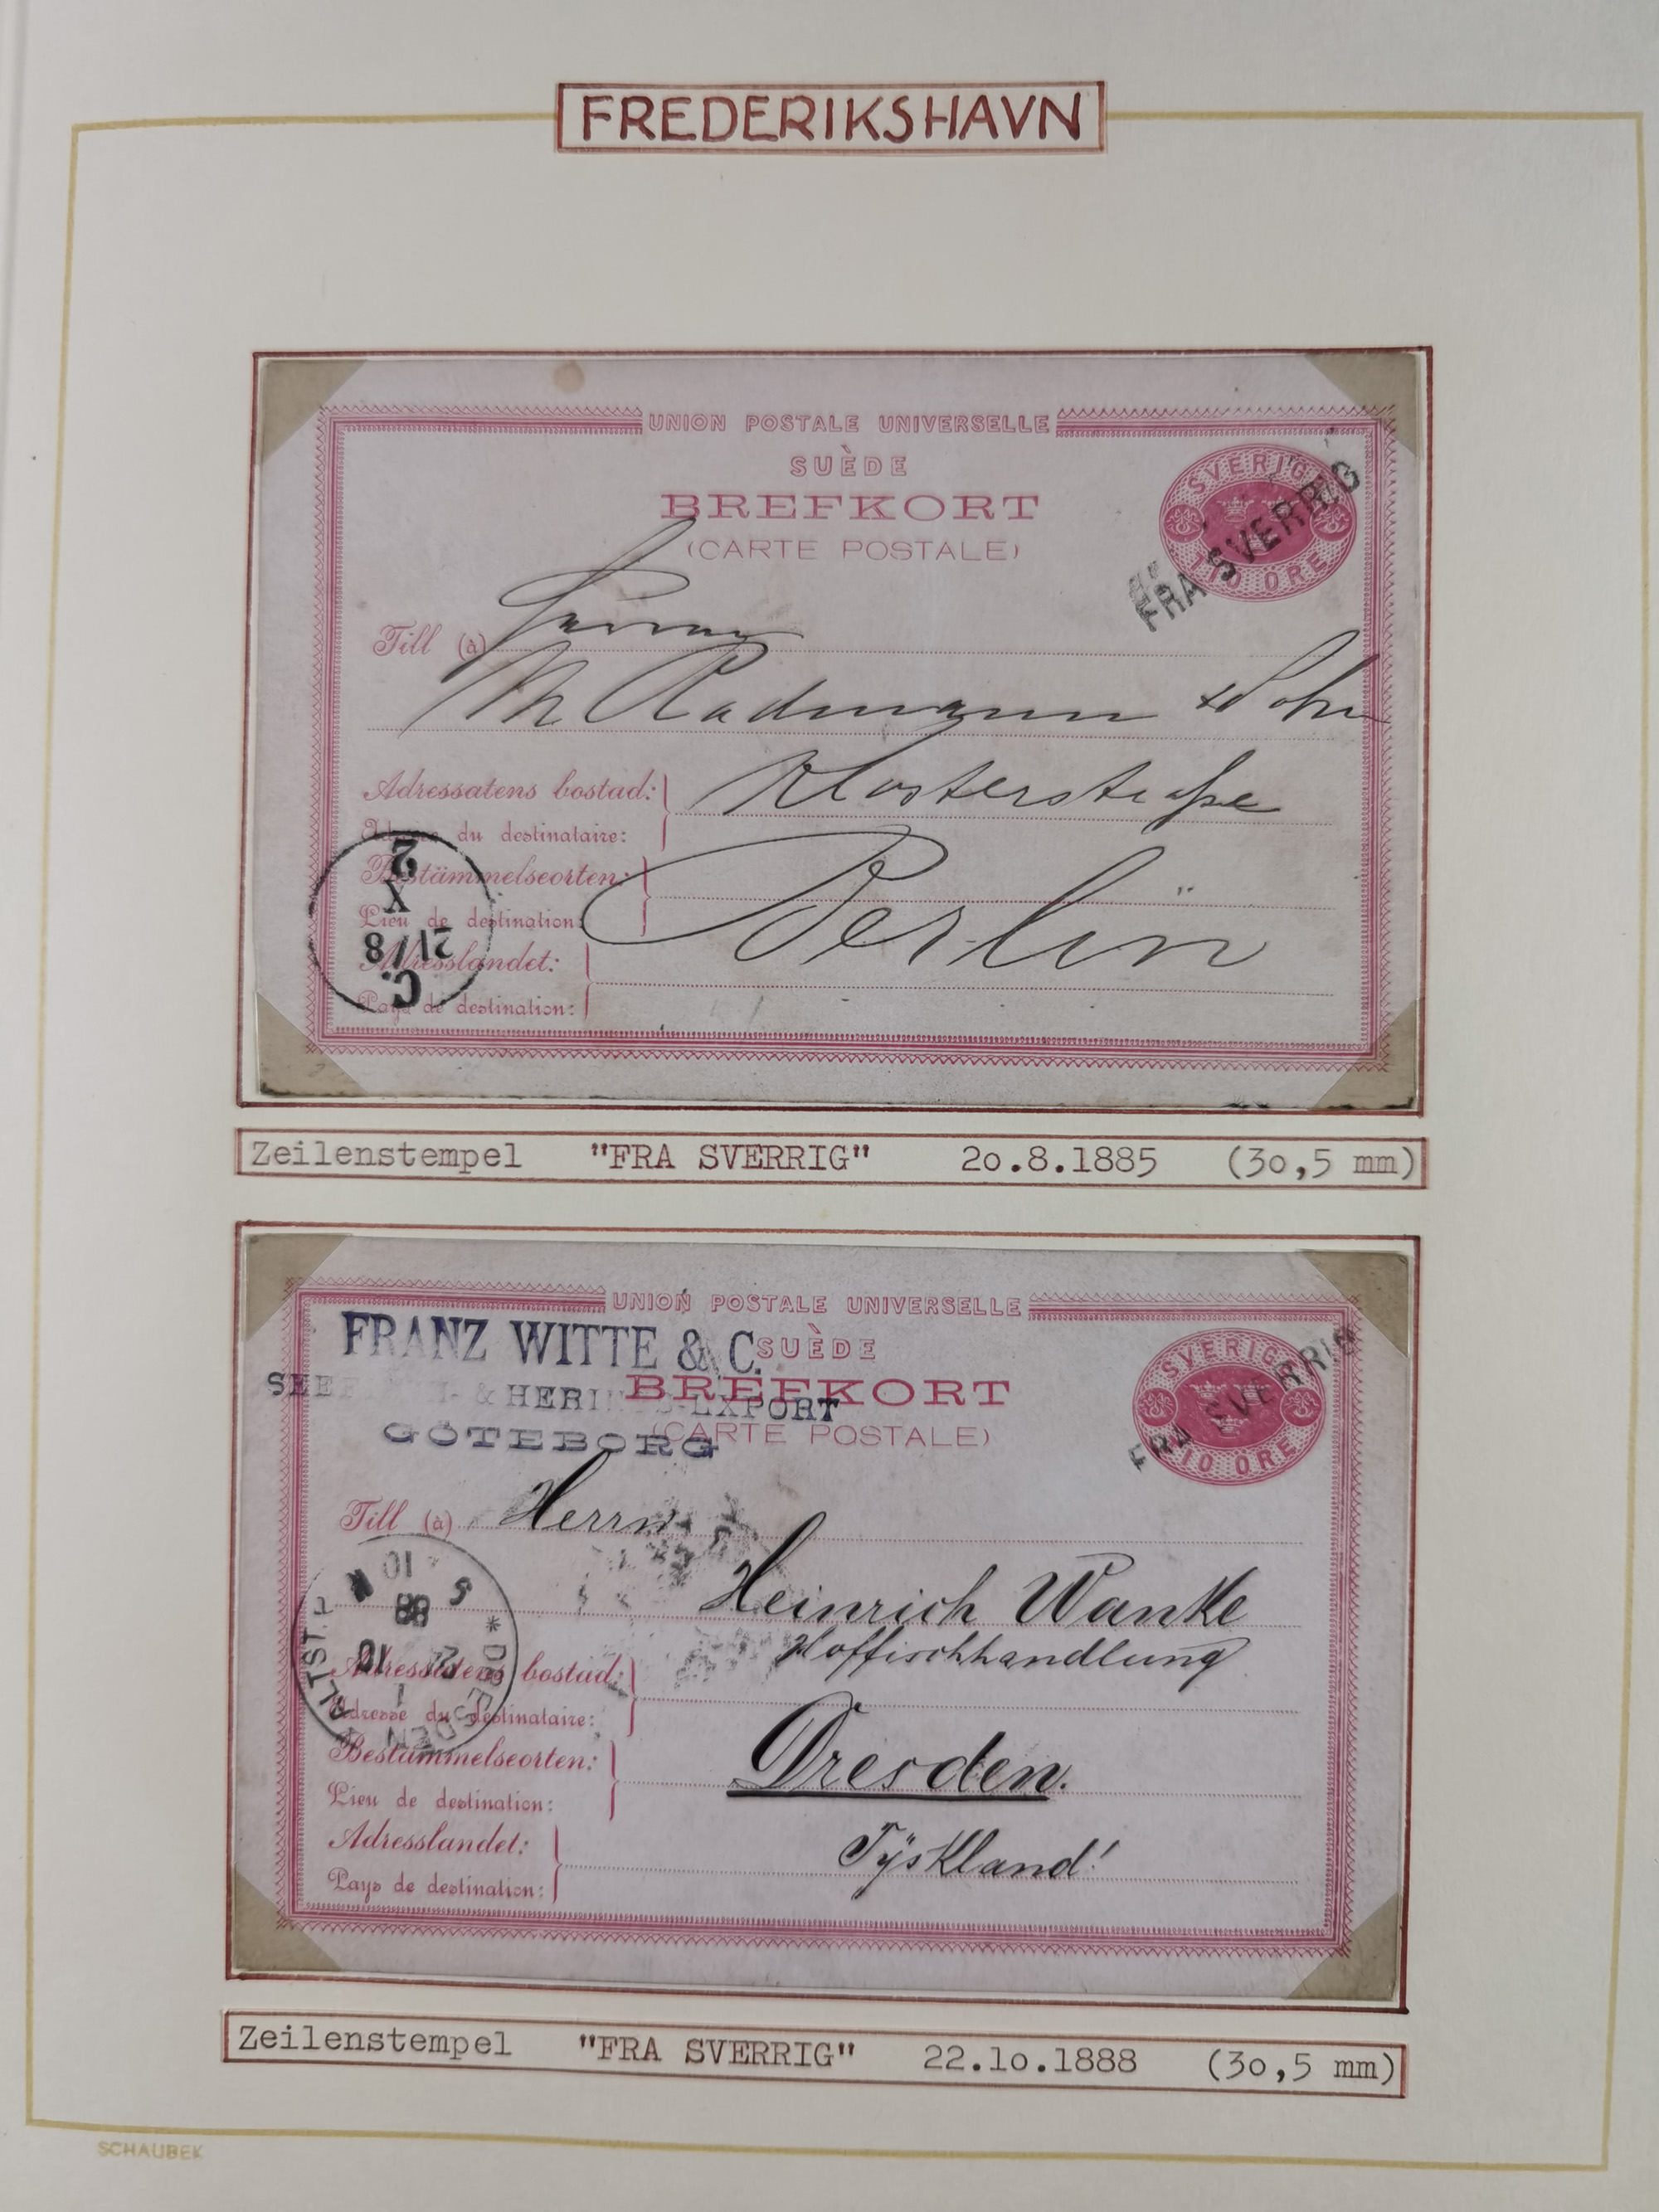 FREDERIKSHAVN
UNION POSTALE UNIVERSELLE
SUÈDE
BREFKORT
(CARTE POSTALE)
SVERIGE
TIO ÖRE
FRA SVERRIG
Till (à)
Th Radmann & Sohn
Adressatens bostad:
Adresse du destinataire:
Klosterstraße
Bestämmelseorten:
Lieu de destination:
Berlin
Adresslandet:
Pays de destination:
2
X
21/8
C.
Zeilenstempel "FRA SVERRIG" 20.8.1885 (30,5 mm)
UNION POSTALE UNIVERSELLE
SUÈDE
BREFKORT
(CARTE POSTALE)
FRANZ WITTE & C.
& HERINGS-EXPORT
GÖTEBORG
SVERIGE
TIO ÖRE
FRA SVERRIG
Till (à) Herrn
Heinrich Wanke
Hoffischhandlung
Adressatens bostad:
Adresse du destinataire:
Bestämmelseorten:
Lieu de destination:
Dresden.
Adresslandet:
Pays de destination:
Tyskland!
* DRESDEN ALTST. 1
10
88
Zeilenstempel "FRA SVERRIG" 22.10.1888 (30,5 mm)
SCHAUBEK